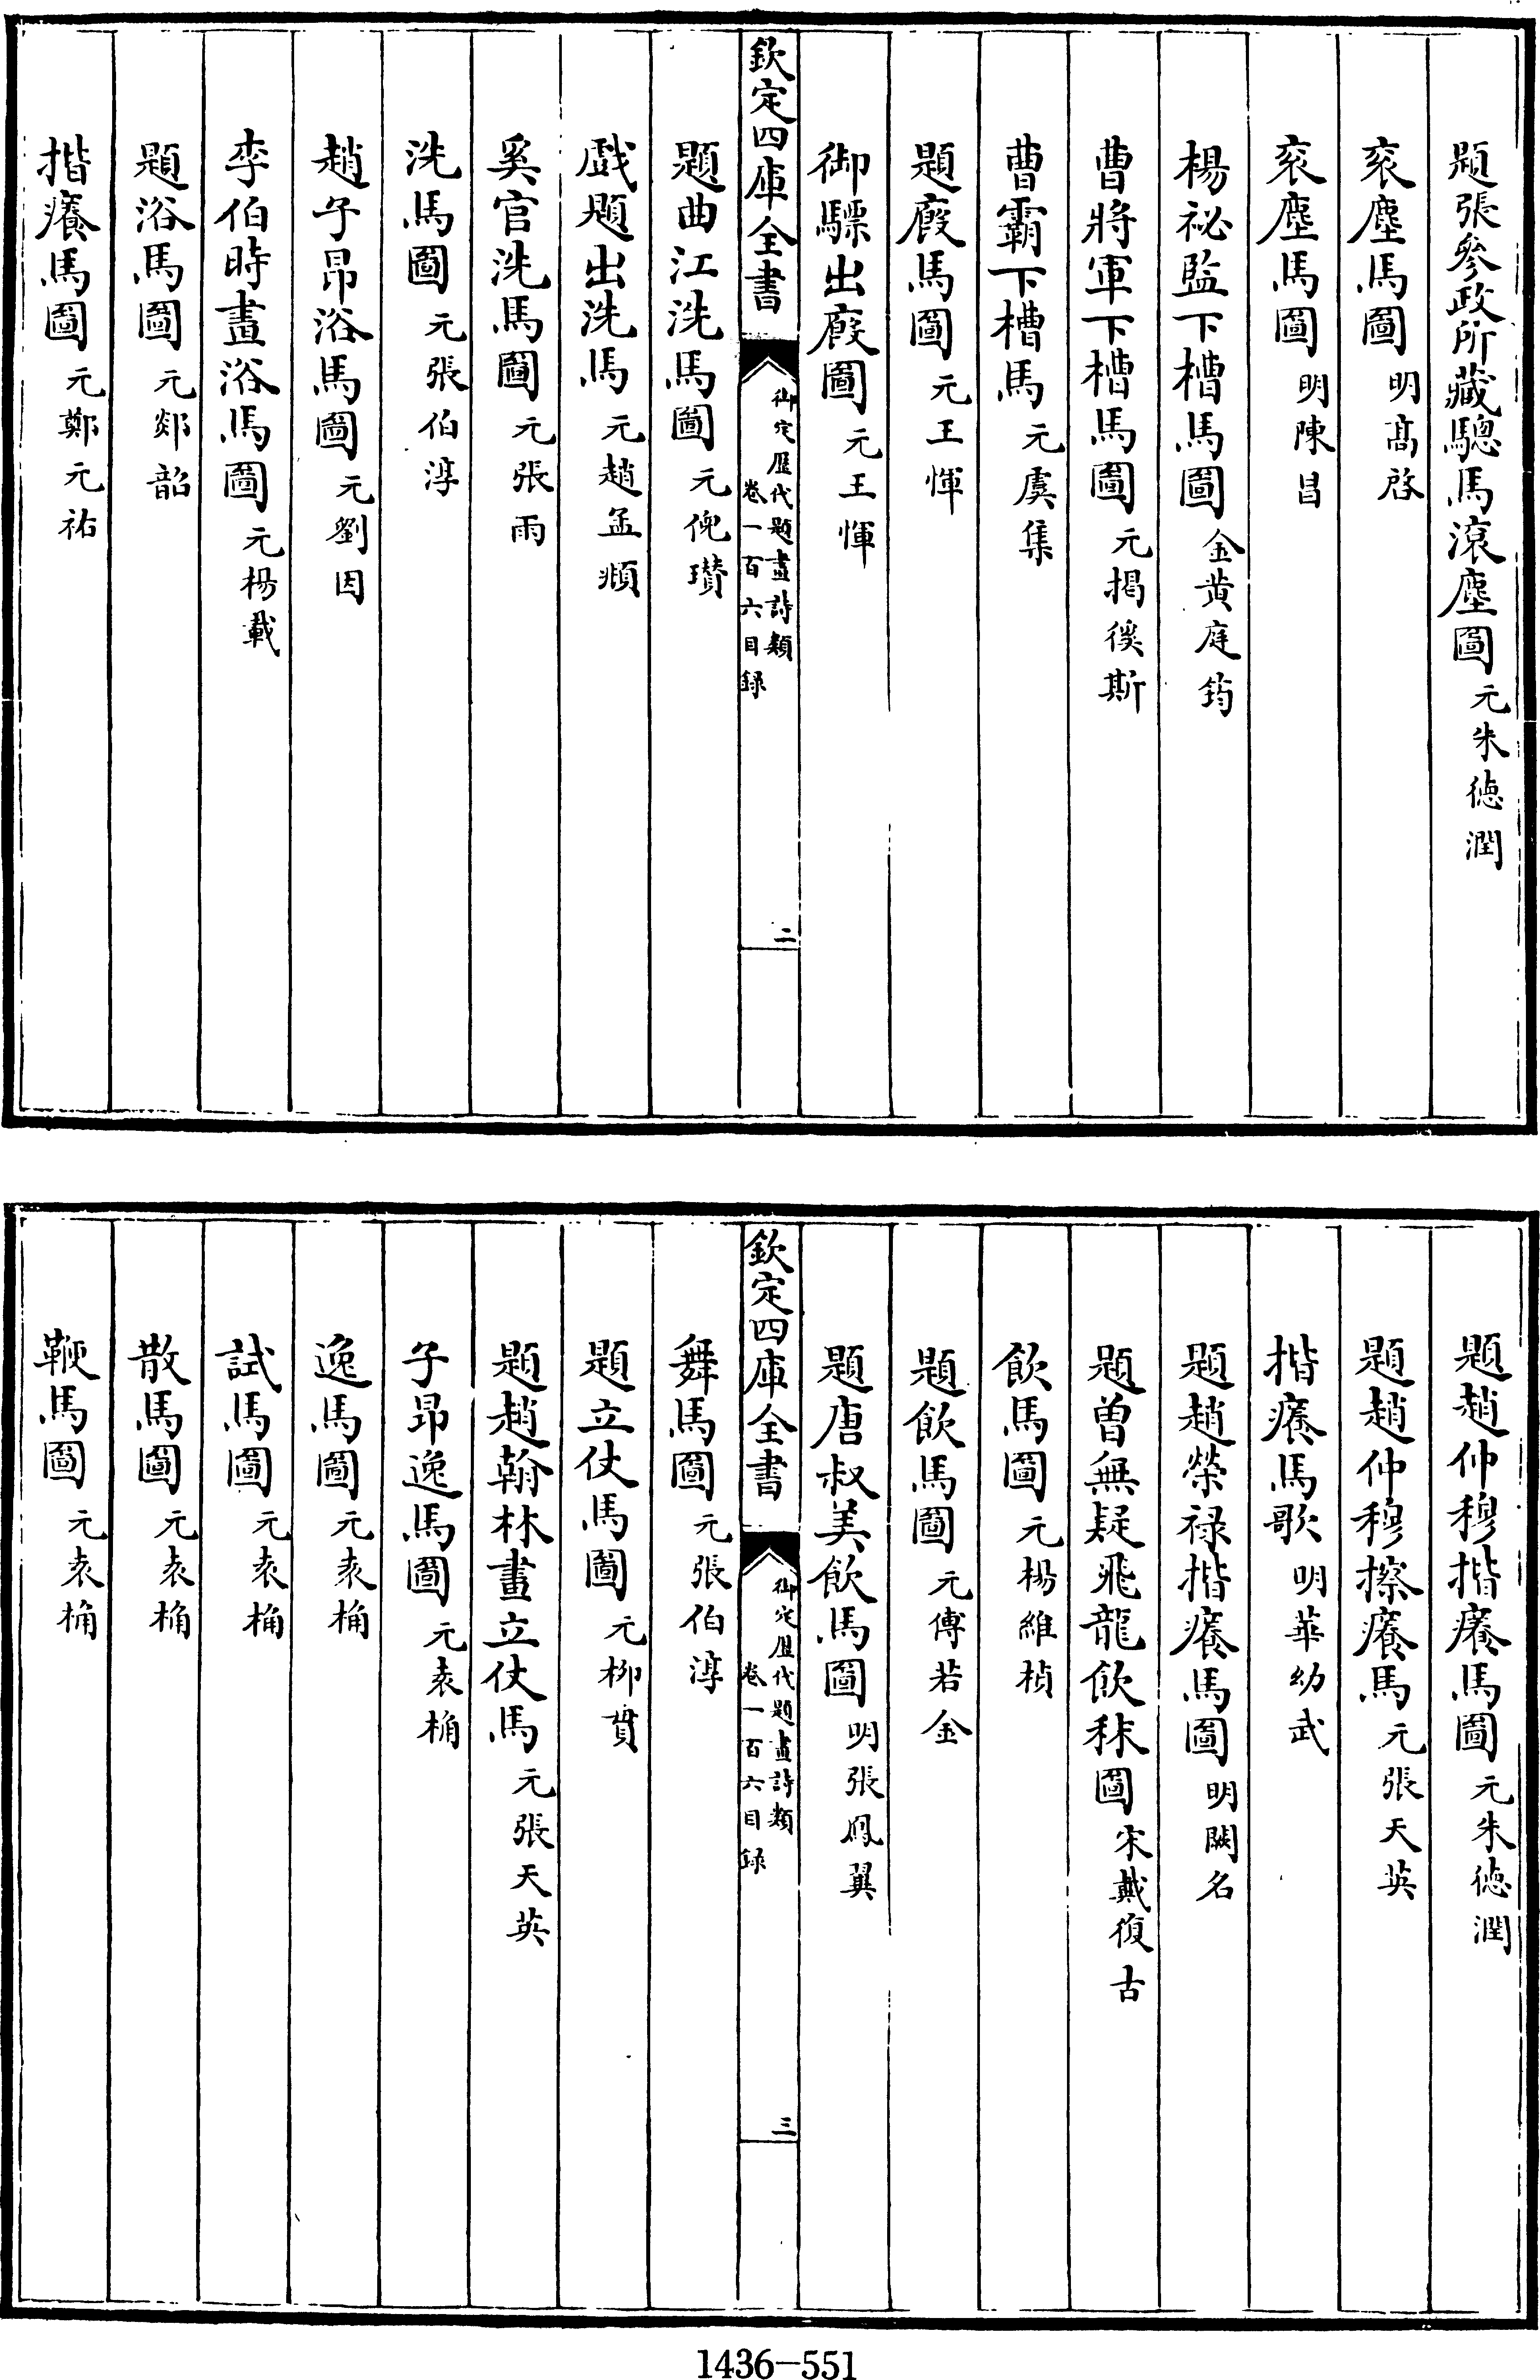 題張參政所藏驄馬滾塵圖 元朱徳潤
衮塵馬圖 明髙啓
衮塵馬圖 明陳昌
楊祕監下槽馬圖 金黄庭筠
曹將軍下槽馬圖 元揭徯斯
曹霸下槽馬 元虞集
題廐馬圖 元王惲
御驃出廐圖 元王惲
欽定四庫全書 御定歴代題畫詩類 卷一百六目録 二
題曲江洗馬圖 元倪瓚
戲題出洗馬 元趙孟頫
奚官洗馬圖 元張雨
洗馬圖 元張伯淳
趙子昂浴馬圖 元劉因
李伯時畫浴馬圖 元楊載
題浴馬圖 元郯韶
揩癢馬圖 元鄭元祐
題趙仲穆揩癢馬圖 元朱徳潤
題趙仲穆擦癢馬 元張天英
揩癢馬歌 明華幼武
題趙榮禄揩癢馬圖 明闕名
題曽無疑飛龍飲秣圖 宋戴復古
飲馬圖 元楊維楨
題飲馬圖 元傅若金
題唐叔美飲馬圖 明張鳳翼
欽定四庫全書 御定歴代題畫詩類 卷一百六目録 三
舞馬圖 元張伯淳
題立仗馬圖 元柳貫
題趙翰林畫立仗馬 元張天英
子昂逸馬圖 元袁桷
逸馬圖 元袁桷
試馬圖 元袁桷
散馬圖 元袁桷
鞭馬圖 元袁桷
1436-551